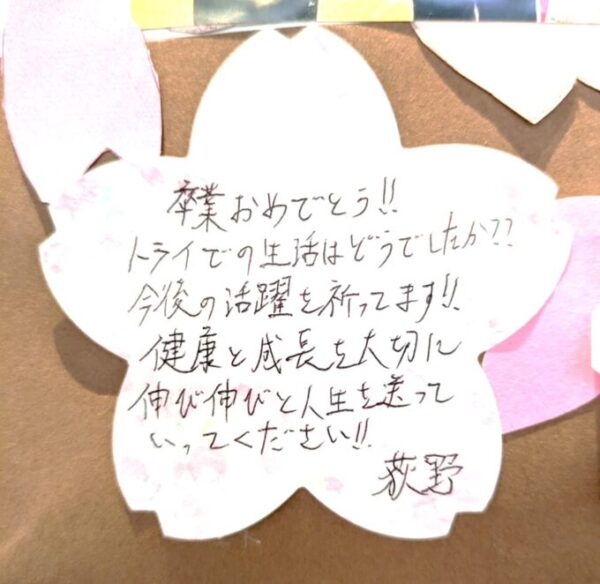 卒業おめでとう!!
トライでの生活はどうでしたか??
今後の活躍を祈ってます!!
健康と成長を大切に
伸び伸びと人生を送って
いってください!!
荻野